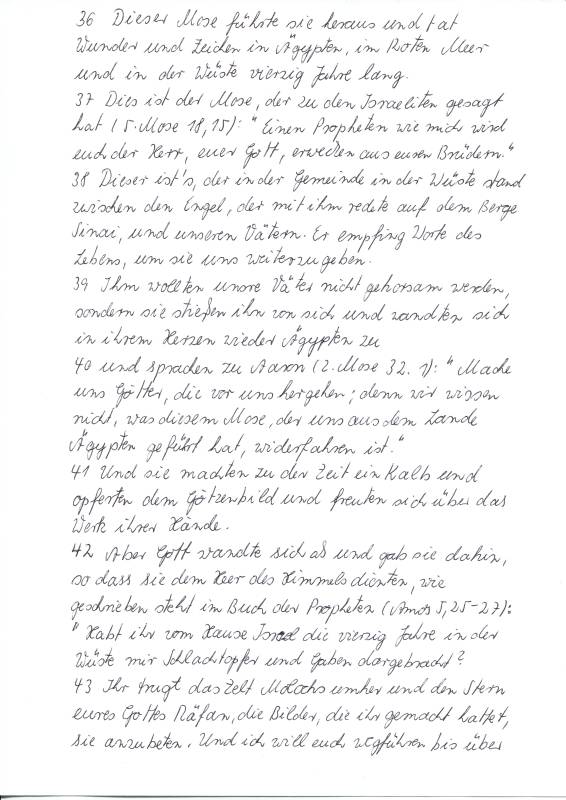 36 Dieser Mose führte sie heraus und tat
Wunder und Zeichen in Ägypten, im Roten Meer
und in der Wüste vierzig Jahre lang.
37 Dies ist der Mose, der zu den Israeliten gesagt
hat (5. Mose 18,15): "Einen Propheten wie mich wird
euch der Herr, euer Gott, erwecken aus euren Brüdern."
38 Dieser ist's, der in der Gemeinde in der Wüste stand
zwischen den Engel, der mit ihm redete auf dem Berge
Sinai, und unseren Vätern. Er empfing Worte des
Lebens, um sie uns weiterzugeben.
39 Ihm wollten unsre Väter nicht gehorsam werden,
sondern sie stießen ihn von sich und wandten sich
in ihrem Herzen wieder Ägypten zu
40 und sprachen zu Aaron (2. Mose 32. 1): "Mache
uns Götter, die vor uns hergehen; denn wir wissen
nicht, was diesem Mose, der uns aus dem Lande
Ägypten geführt hat, widerfahren ist."
41 Und sie machten zu der Zeit ein Kalb und
opferten dem Götzenbild und freuten sich über das
Werk ihrer Hände.
42 Aber Gott wandte sich ab und gab sie dahin,
so dass sie dem Heer des Himmels dienten, wie
geschrieben steht im Buch der Propheten (Amos 5,25-27):
"Habt ihr vom Hause Israel die vierzig Jahre in der
Wüste mir Schlachtopfer und Gaben dargebracht?
43 Ihr trugt das Zelt Molochs umher und den Stern
eures Gottes Räfan, die Bilder, die ihr gemacht hattet,
sie anzubeten. Und ich will euch wegführen bis über